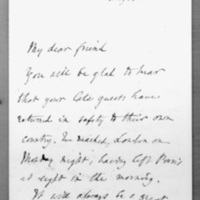 My dear friend
You will be glad to hear
that your late guests have
returned in safety to their own
country. We reached London on
Monday night, having left Paris
at eight in the morning.
It will always be a great